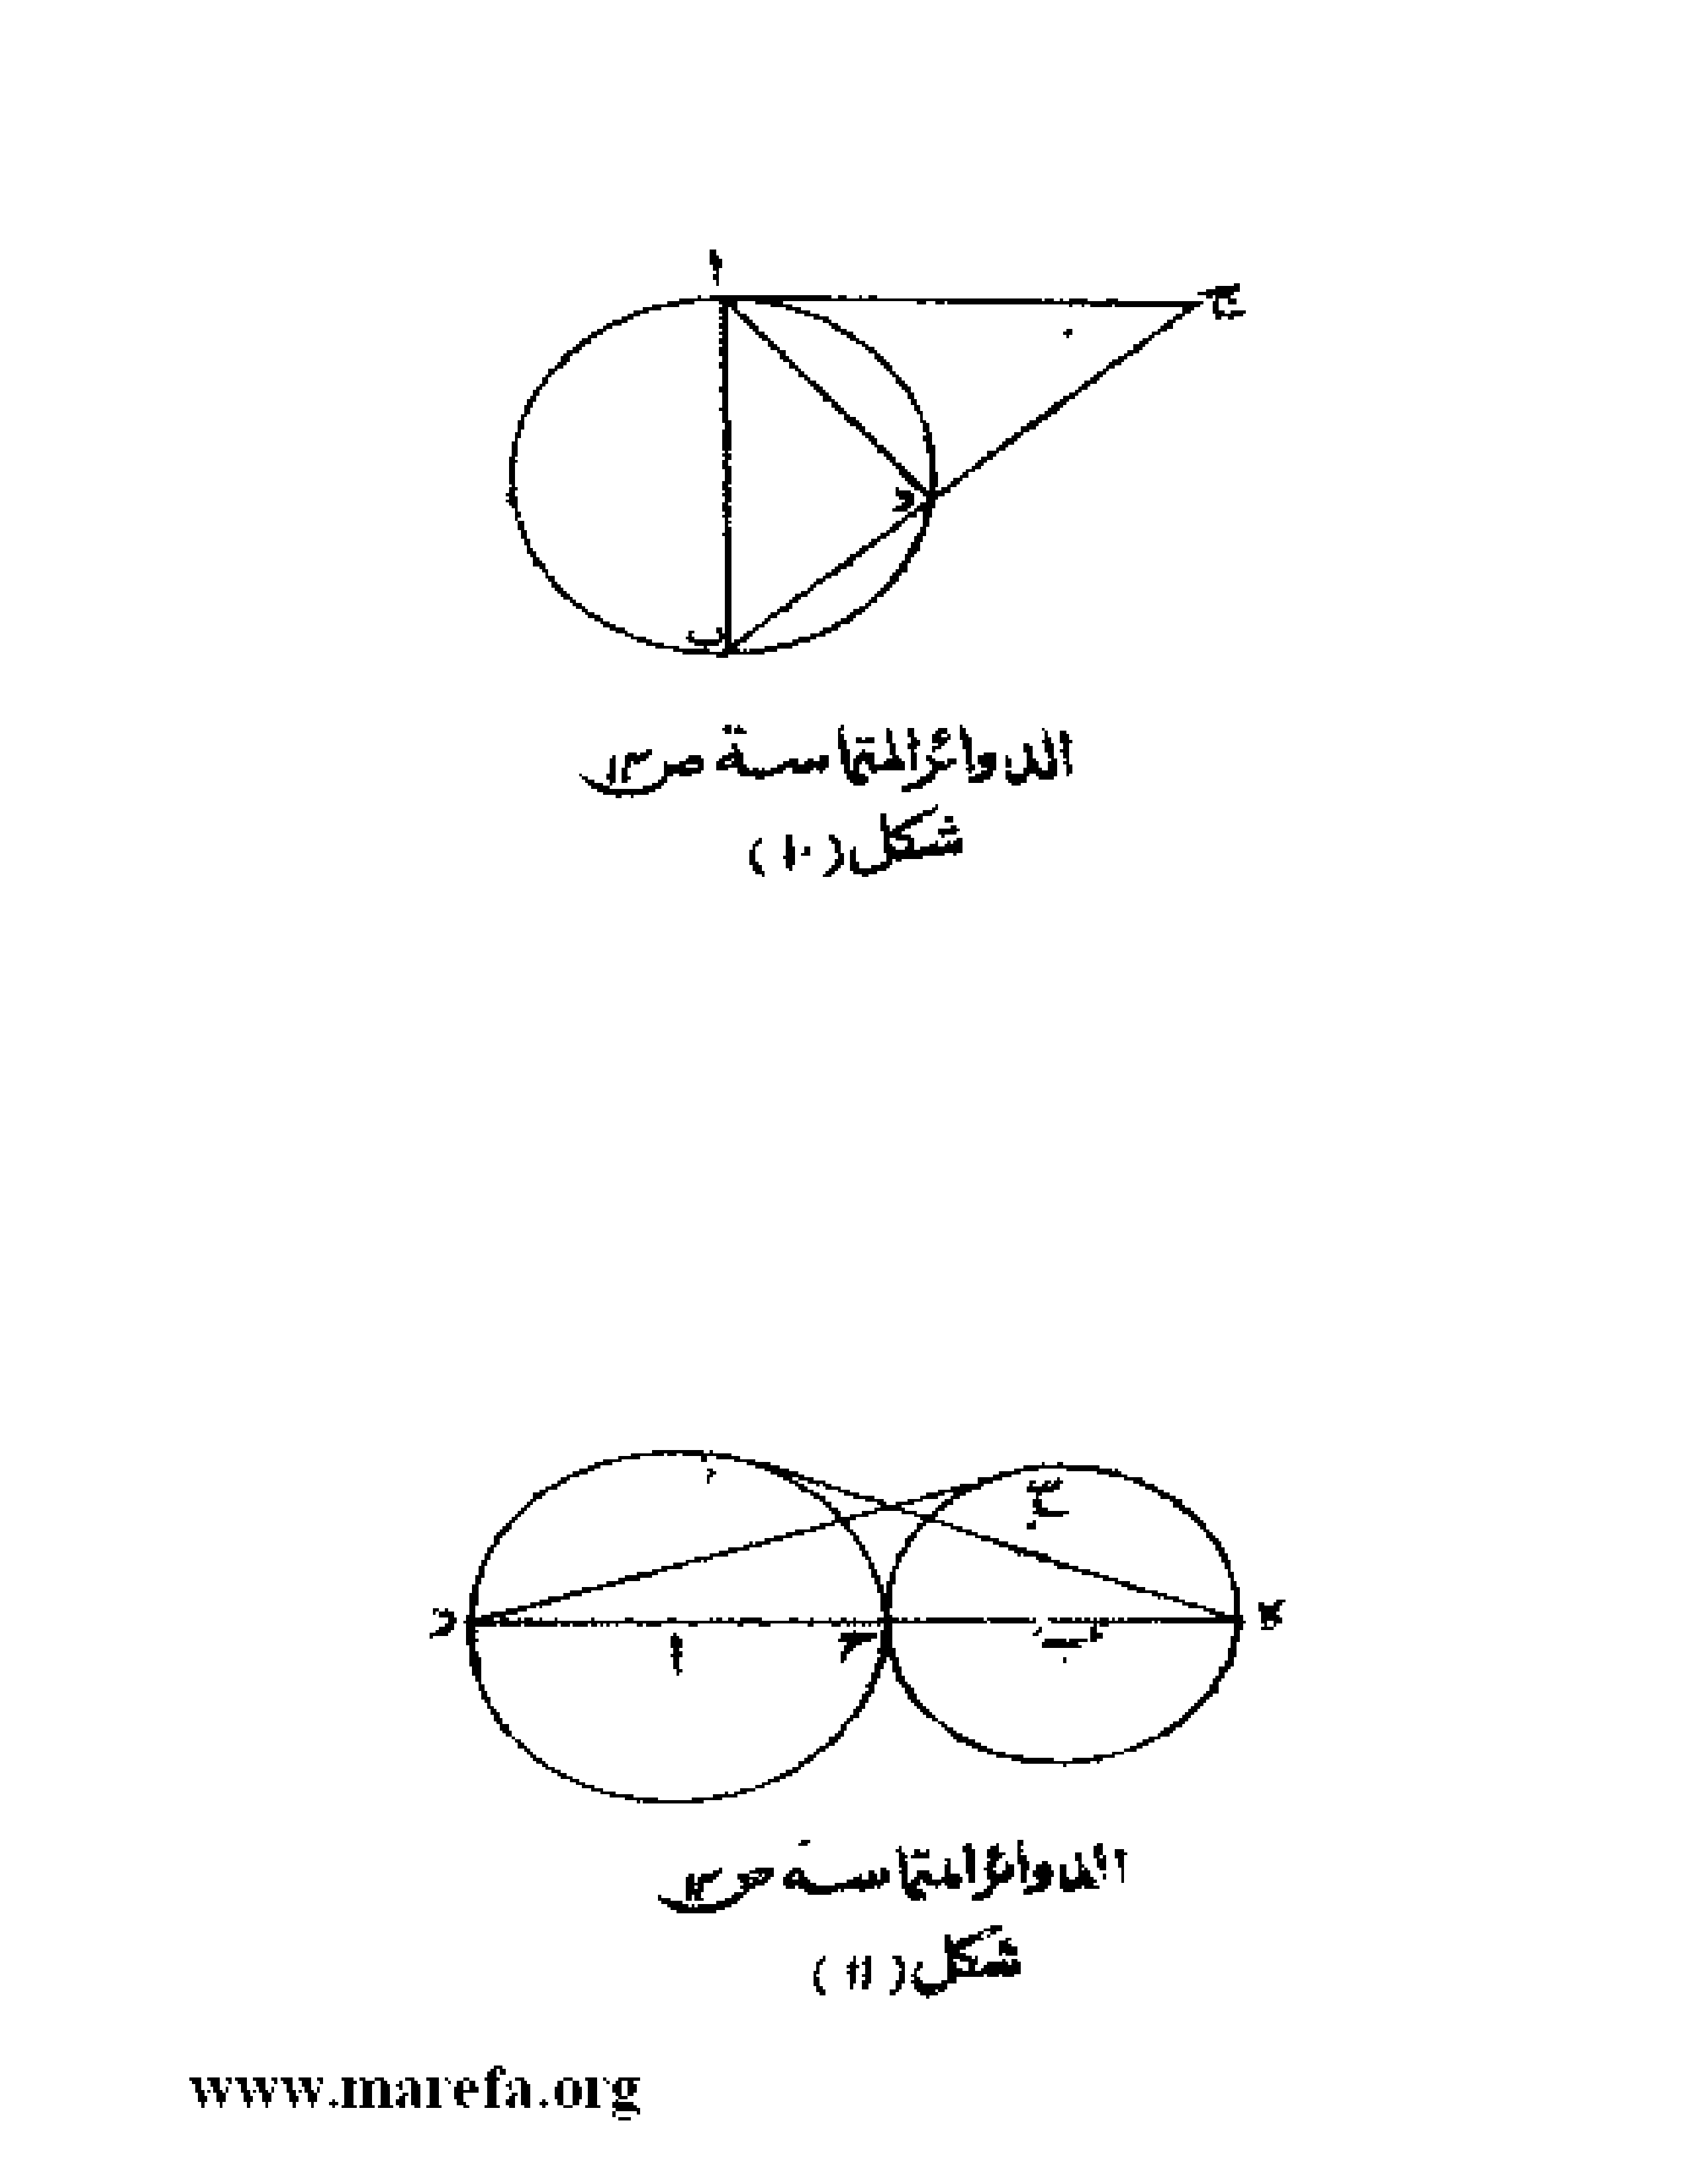 ا
ج
د
ب
الدوائر المتماسة ص١٣
شكل (١٠)
د
ا
ح
ب
ه
الدوائر المتماسة ص١٣
شكل (١١)
www.marefa.org